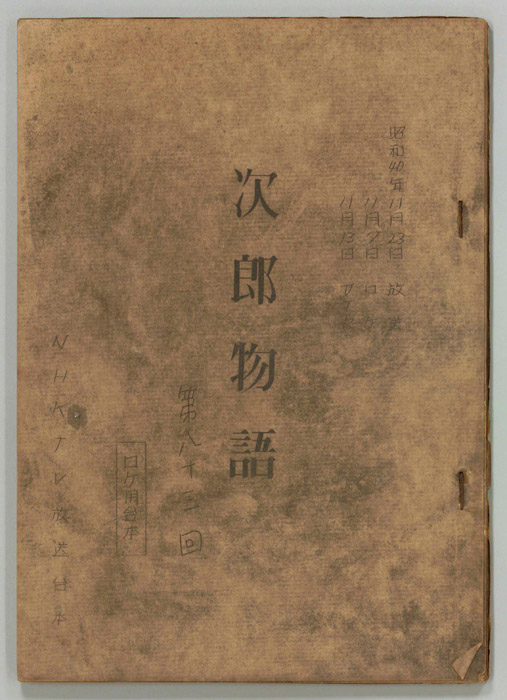 昭和40年11月23日 放送
11月9日 ロケ
11月13日
次郎物語
第八十三回
ロケ用台本
NHKテレ放送台本